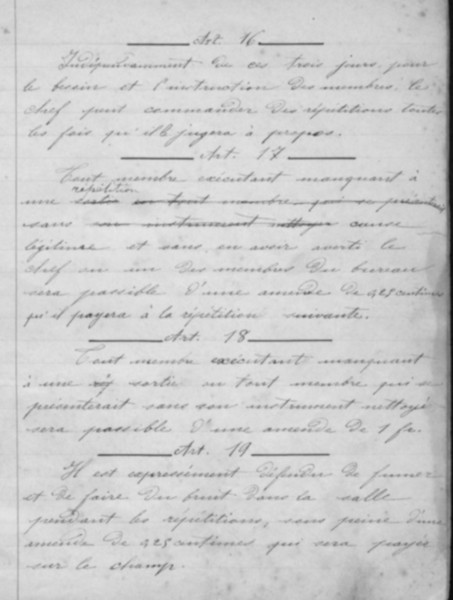 Art. 16
Indépendamment de ces trois jours, pour
le besoin et l'instruction des membres, le
chef peut commander des répétitions toutes
les fois qu'il le jugera à propos.
Art. 17
Tout membre exécutant manquant à
répétition
une sortie ou tout membre qui se présenterait
sans son instrument nettoyé cause
légitime et sans en avoir averti le
chef ou un des membres du bureau
sera passible d'une amende de 0,25 centimes
qu'il payera à la répétition suivante.
Art. 18
Tout membre exécutant manquant
à une sortie ou tout membre qui se
présenterait sans son instrument nettoyé
sera passible d'une amende de 1 fr.
Art. 19
Il est expressément défendu de fumer
et de faire du bruit dans la salle
pendant les répétitions, sous peine d'une
amende de 0,25 centimes qui sera payée
sur le champ.